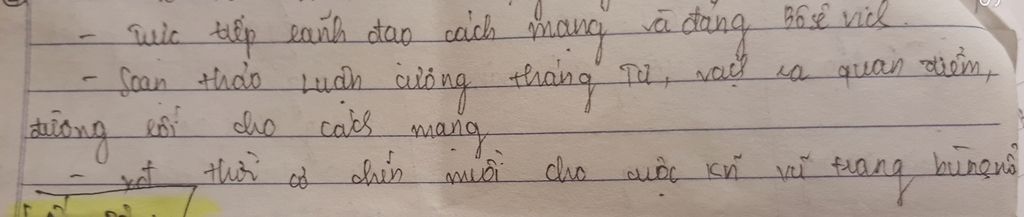 - Trực tiếp lãnh đạo cách mạng và đảng Bôsê vich.
- Soạn thảo Luận cương tháng Tư, vạch ra quan điểm,
đường lối cho cách mạng
- thời cơ chín muồi cho cuộc kn vũ trang bùng nổ